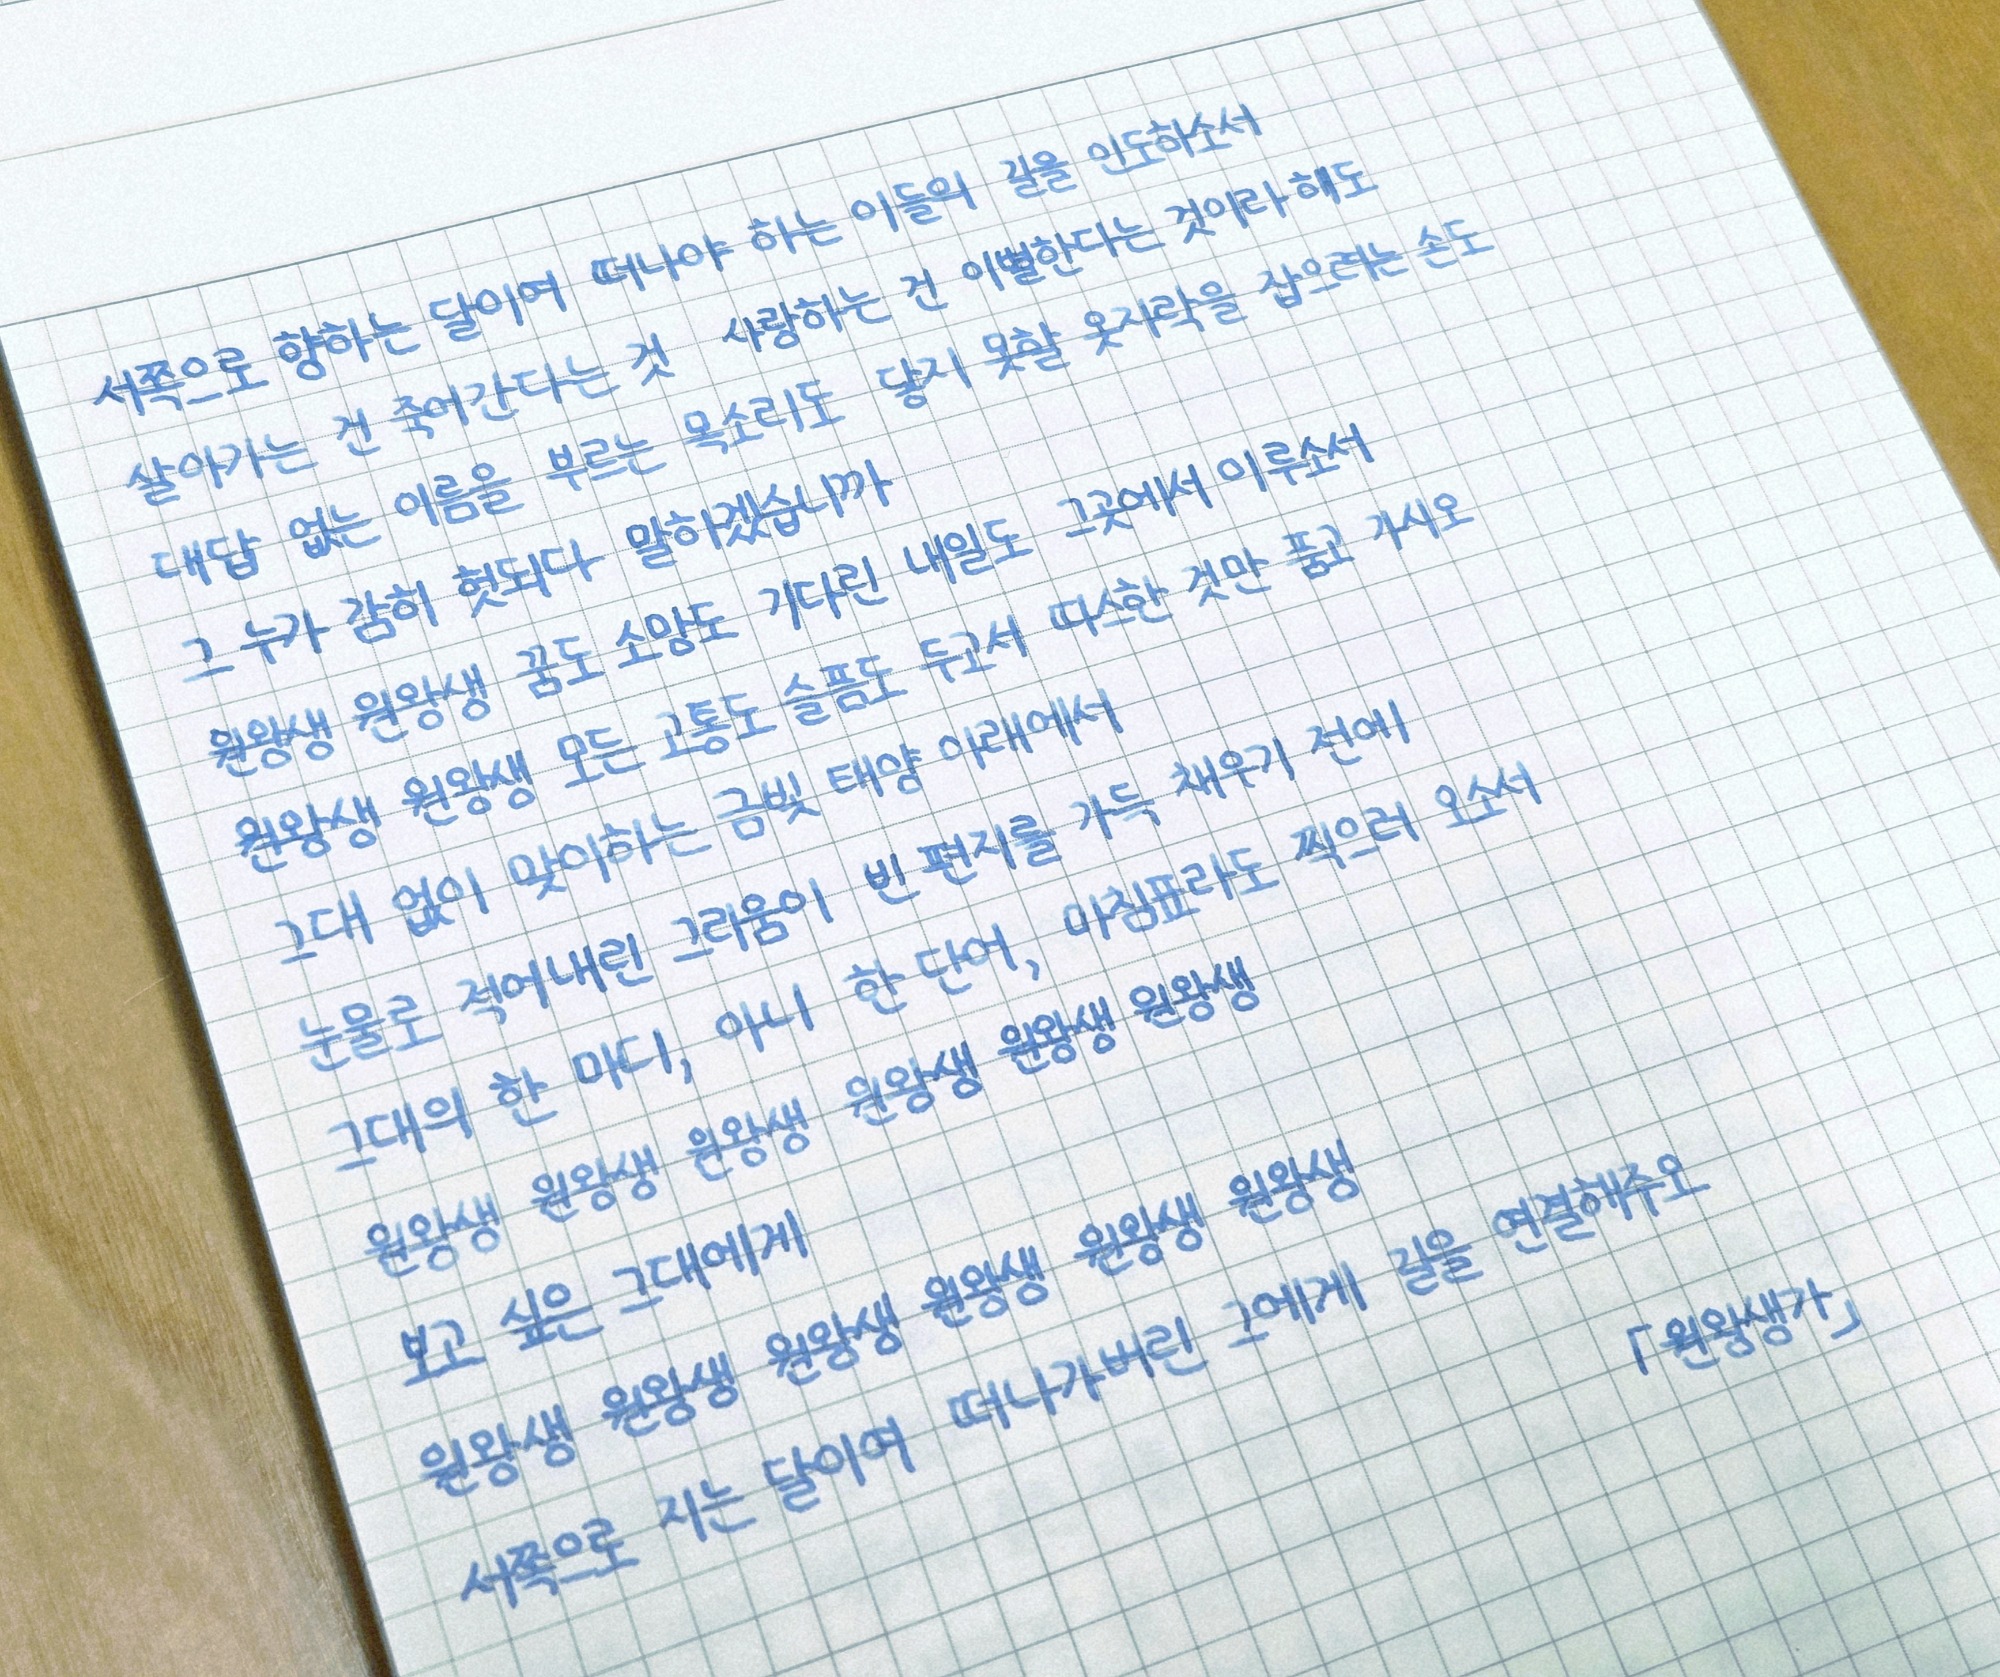 서쪽으로 향하는 달이여 떠나야 하는 이들의 길을 인도하소서
살아가는 건 죽어간다는 것 사랑하는 건 이별한다는 것이라 해도
대답 없는 이름을 부르는 목소리도 닿지 못할 옷자락을 잡으려는 손도
그 누가 감히 헛되다 말하겠습니까
원왕생 원왕생 꿈도 소망도 기다린 내일도 그곳에서 이루소서
원왕생 원왕생 모든 고통도 슬픔도 두고서 따스한 것만 품고 가시오
그대 없이 맞이하는 금빛 태양 아래에서
눈물로 적어내린 그리움이 빈 편지를 가득 채우기 전에
그대의 한 마디, 아니 한 단어, 마침표라도 찍으러 오소서
원왕생 원왕생 원왕생 원왕생 원왕생 원왕생
보고 싶은 그대에게
원왕생 원왕생 원왕생 원왕생 원왕생 원왕생
서쪽으로 지는 달이여 떠나가버린 그에게 길을 연결해주오
「원왕생가」